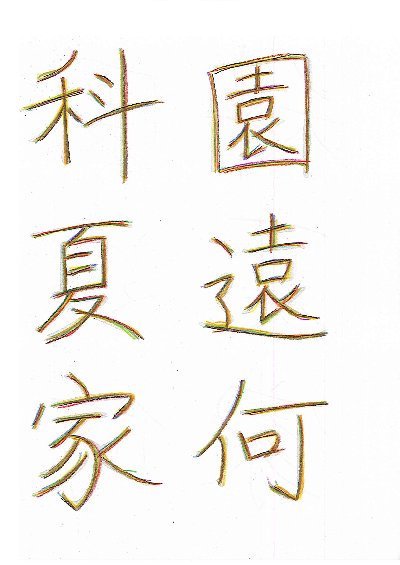 園遠何
科夏家